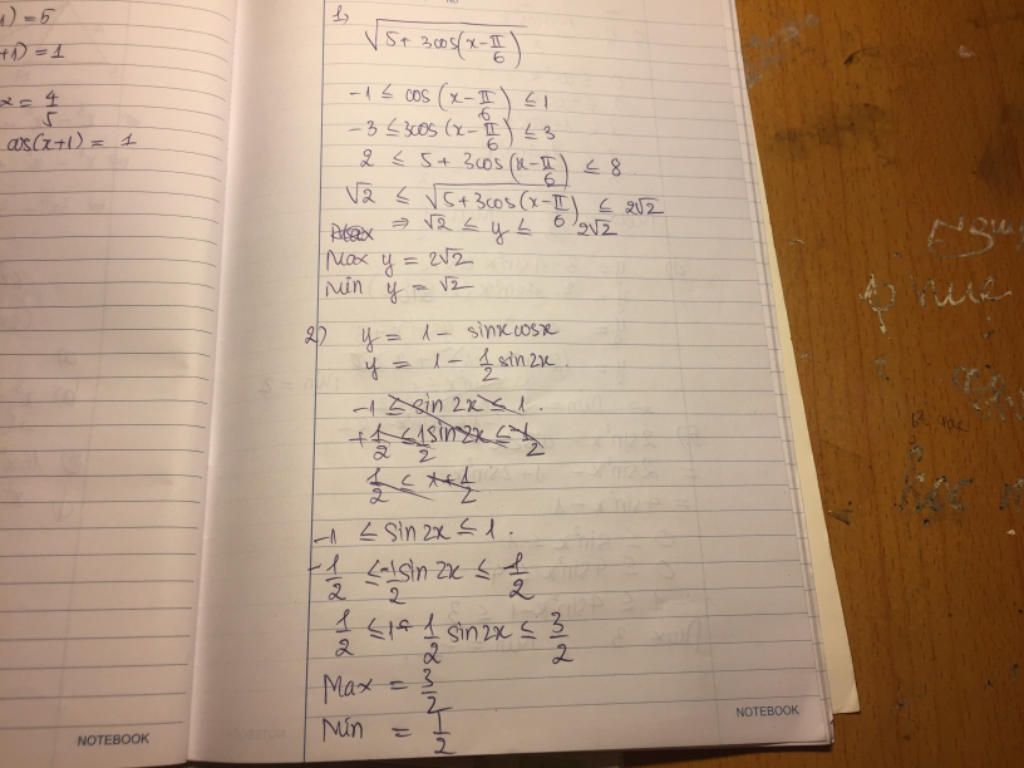 1) = 5
+1) = 1
x = 4/5
cos(x+1) = 1
NOTEBOOK
1,
√(5 + 3cos(x - π/6))
-1 ≤ cos(x - π/6) ≤ 1
-3 ≤ 3cos(x - π/6) ≤ 3
2 ≤ 5 + 3cos(x - π/6) ≤ 8
√2 ≤ √(5 + 3cos(x - π/6)) ≤ 2√2
Max ⇒ √2 ≤ y ≤ 2√2
Max y = 2√2
Min y = √2
2) y = 1 - sinxcosx
y = 1 - 1/2 sin2x.
-1 ≤ sin 2x ≤ 1.
-1 ≤ sin 2x ≤ 1.
-1/2 ≤ -1/2 sin 2x ≤ 1/2
1/2 ≤ 1 - 1/2 sin2x ≤ 3/2
Max = 3/2
Min = 1/2
NOTEBOOK